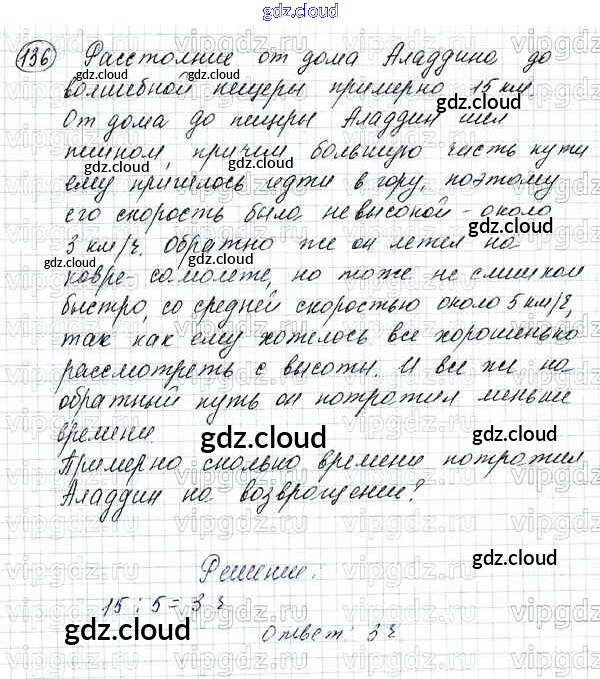 gdz.cloud
136 Расстояние от дома Аладдина до
волшебной пещеры примерно 15 км.
От дома до пещеры Аладдин шел
пешком, причем большую часть пути
ему пришлось идти в гору, поэтому
его скорость была невысокой - около
3 км/ч. Обратно же он летел на
ковре-самолете, но тоже не слишком
быстро, со средней скоростью около 5 км/ч,
так как ему хотелось все хорошенько
рассмотреть с высоты. И все же на
обратный путь он потратил меньше
времени
Примерно сколько времени потратил
Аладдин на возвращение?
Решение:
15 : 5 = 3 ч
Ответ: 3 ч
gdz.cloud